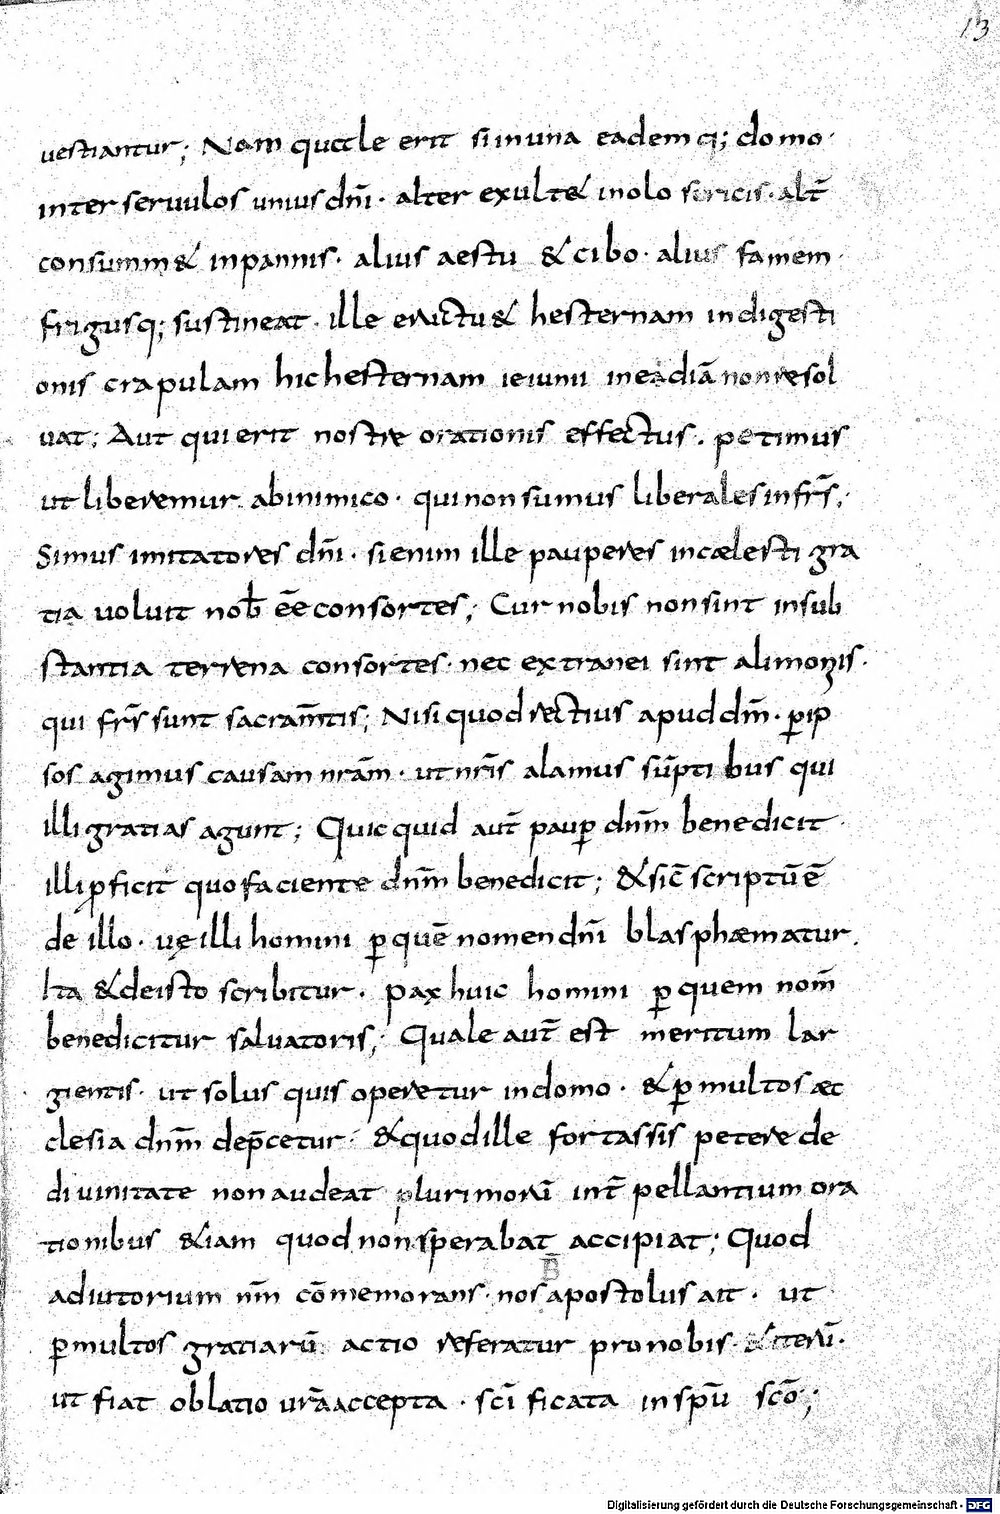 13
uestiantur; Nam quale erit si in una eademq; domo·
inter seruulos unius dñi· alter exult& in olo sericis· alt̄
consumm& in pannis· alius aestu & cibo· alius famem·
frigusq; sustineat· ille eructu& hesternam indigesti
onis crapulam hic hesternam ieiunii inediā non resol
uat; Aut qui erit nostre orationis effectus. petimus
ut liberemur ab inimico· qui non sumus liberales in fr̄s;
Simus imitatores dñi· si enim ille pauperes in cælesti gra
tia uoluit nob̄ eē consortes; Cur nobis non sint in sub
stantia terrena consortes· nec extranei sint alimoniis·
qui fr̄s sunt sacram̄tis; Nisi quod rectius apud dm̄· ꝑ ip
sos agimus causam nrām· ut nr̄is alamus sūptibus qui
illi gratias agunt; Quicquid aut̄ pauꝑ dnm̄ benedicit·
illi ꝓficit quo faciente dnm̄ benedicit; & sic̄ scriptū ē
de illo· uę illi homini ꝑ quē nomen dñi blasphæmatur.
Ita & de isto scribitur· pax huic homini ꝑ quem nom̄
benedicitur saluatoris; Quale aut̄ est meritum lar
gientis· ut solus quis operetur in domo· & ꝑ multos æc
clesia dnm̄ dep̄cetur· & quod ille fortassis petere de
diuinitate non audeat plurimorū int̄pellantium ora
tionibus &iam quod non sperabat accipiat; Quod
B
adiutorium nm̄ cōmemorans· nos apostolus ait· ut
ꝑ multos gratiarū actio referatur pro nobis· & iterū·
ut fiat oblatio urā accepta· scī ficata in spū scō;
Digitalisierung gefördert durch die Deutsche Forschungsgemeinschaft - DFG